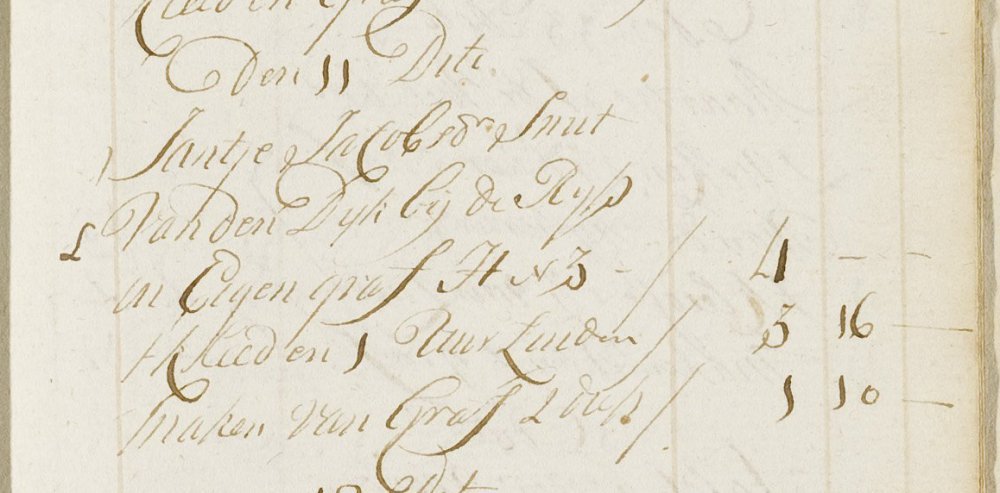 Kleed en Graf /
Den 11 Dito
Jantje Jacobs dr Smit
Van den Dyk bij de Ryp
L in Eigen graf H N 3 - / 4 - -
t kleed en 1 Uur Luiden / 3 16 -
maken van Graf 2 diep / 1 10 -
Dito